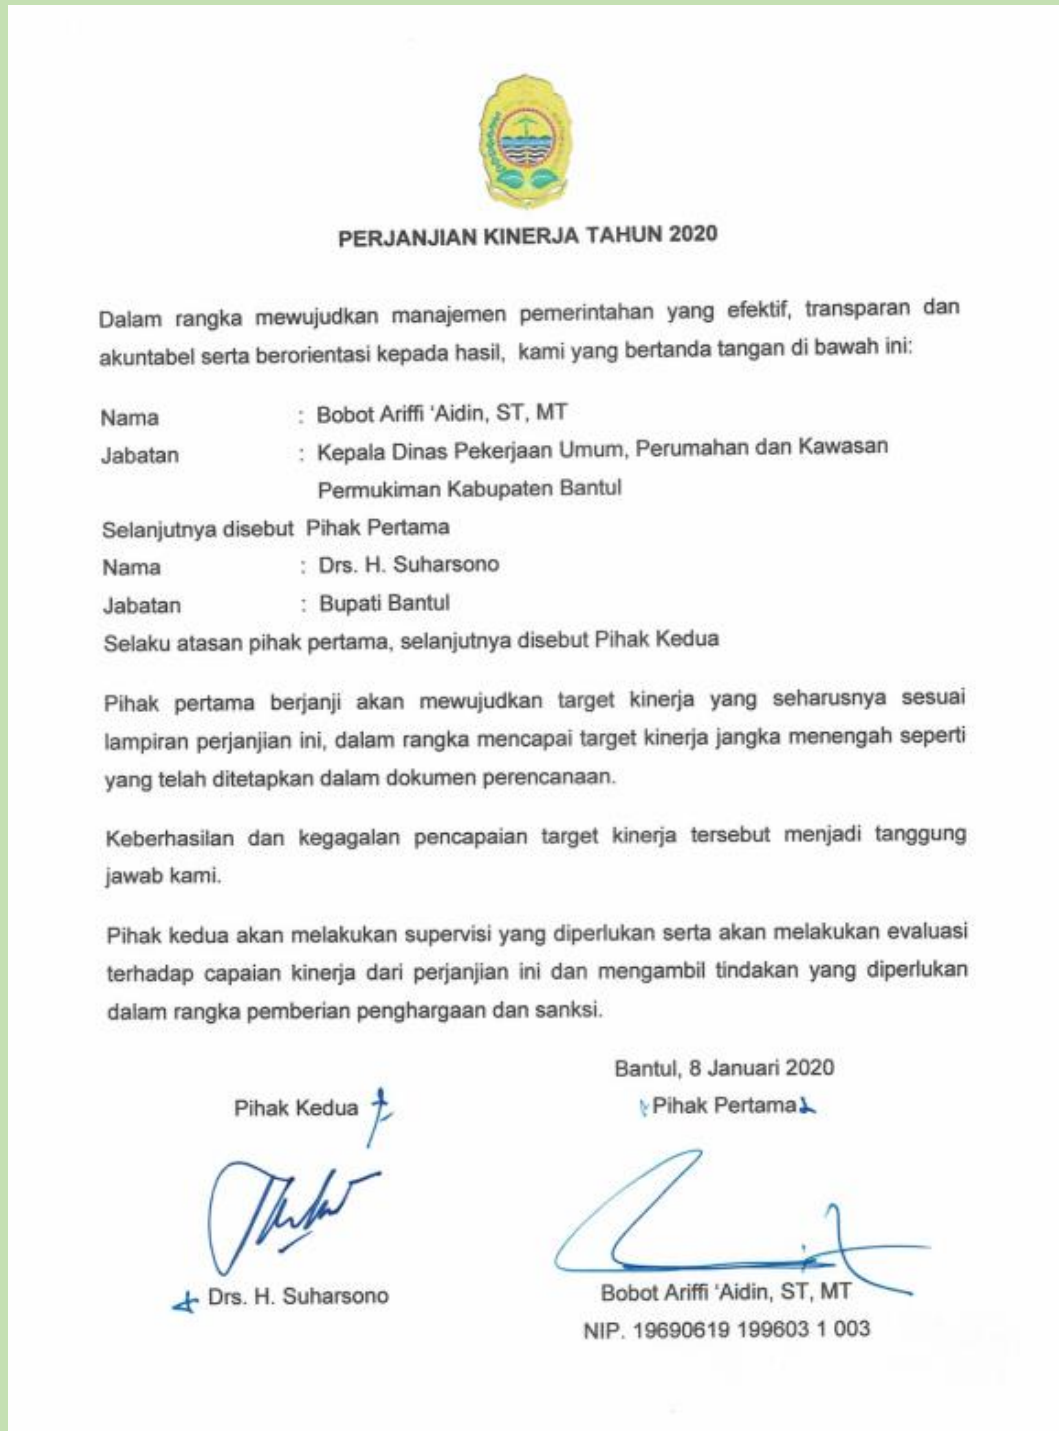 PERJANJIAN KINERJA TAHUN 2020
Dalam rangka mewujudkan manajemen pemerintahan yang efektif, transparan dan
akuntabel serta berorientasi kepada hasil, kami yang bertanda tangan di bawah ini:
Nama : Bobot Ariffi 'Aidin, ST, MT
Jabatan : Kepala Dinas Pekerjaan Umum, Perumahan dan Kawasan
Permukiman Kabupaten Bantul
Selanjutnya disebut Pihak Pertama
Nama : Drs. H. Suharsono
Jabatan : Bupati Bantul
Selaku atasan pihak pertama, selanjutnya disebut Pihak Kedua
Pihak pertama berjanji akan mewujudkan target kinerja yang seharusnya sesuai
lampiran perjanjian ini, dalam rangka mencapai target kinerja jangka menengah seperti
yang telah ditetapkan dalam dokumen perencanaan.
Keberhasilan dan kegagalan pencapaian target kinerja tersebut menjadi tanggung
jawab kami.
Pihak kedua akan melakukan supervisi yang diperlukan serta akan melakukan evaluasi
terhadap capaian kinerja dari perjanjian ini dan mengambil tindakan yang diperlukan
dalam rangka pemberian penghargaan dan sanksi.
Bantul, 8 Januari 2020
Pihak Kedua
Pihak Pertama
Drs. H. Suharsono
Bobot Ariffi 'Aidin, ST, MT
NIP. 19690619 199603 1 003